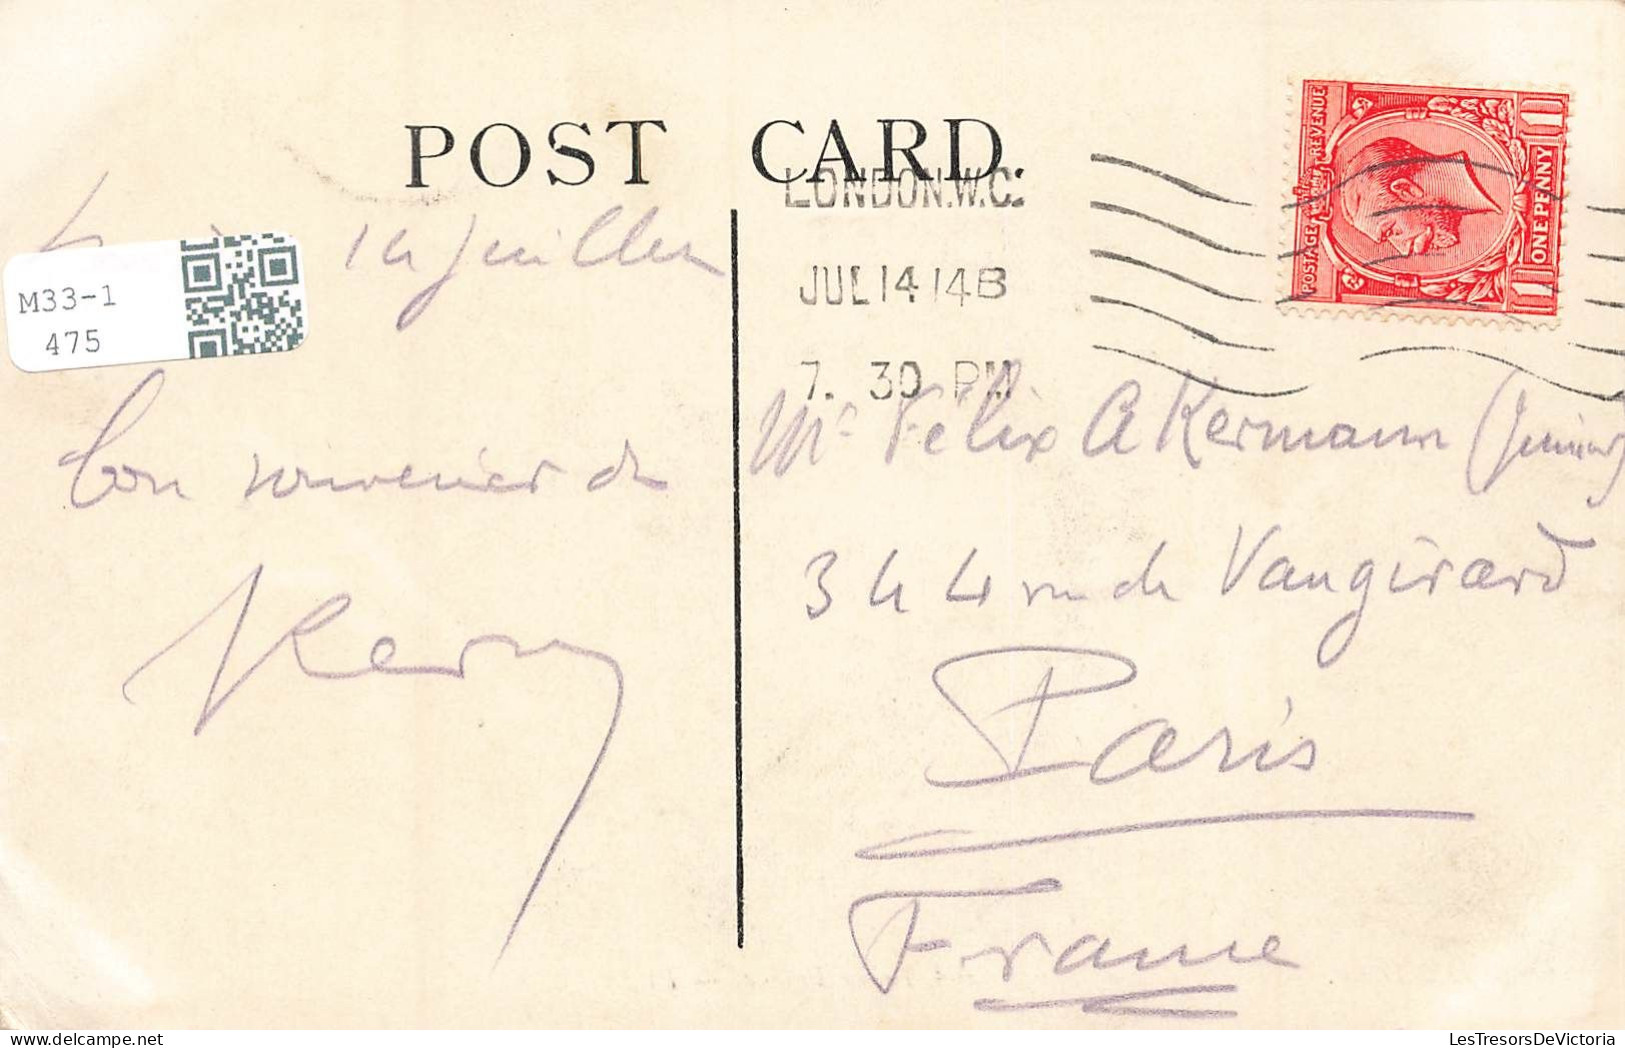 POST CARD.
LONDON.W.C.
JUL 14 14 B
7. 30 PM
POSTAGE REVENUE
ONE PENNY
M33-1
475
14 juillet
bon souvenir de
Mr Félix Akermann (junior)
344 rue de Vaugirard
Paris
France
LesTresorsDeVictoria